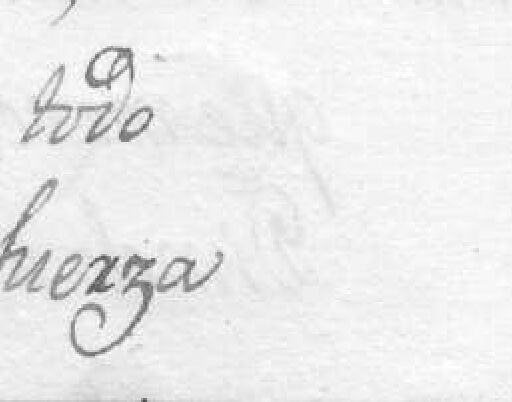 todo
huerza